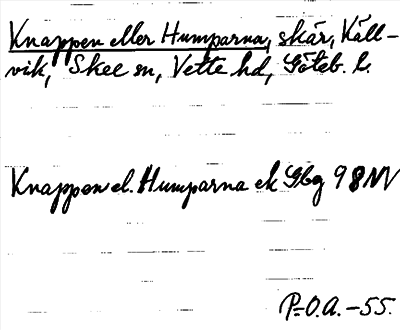 Knappen eller Humparna, skär, Käll-
vik, Skee sn, Vette hd, Göteb. l.
Knappen el. Humparna ek Gbg 98NV
P-O.A.-55.